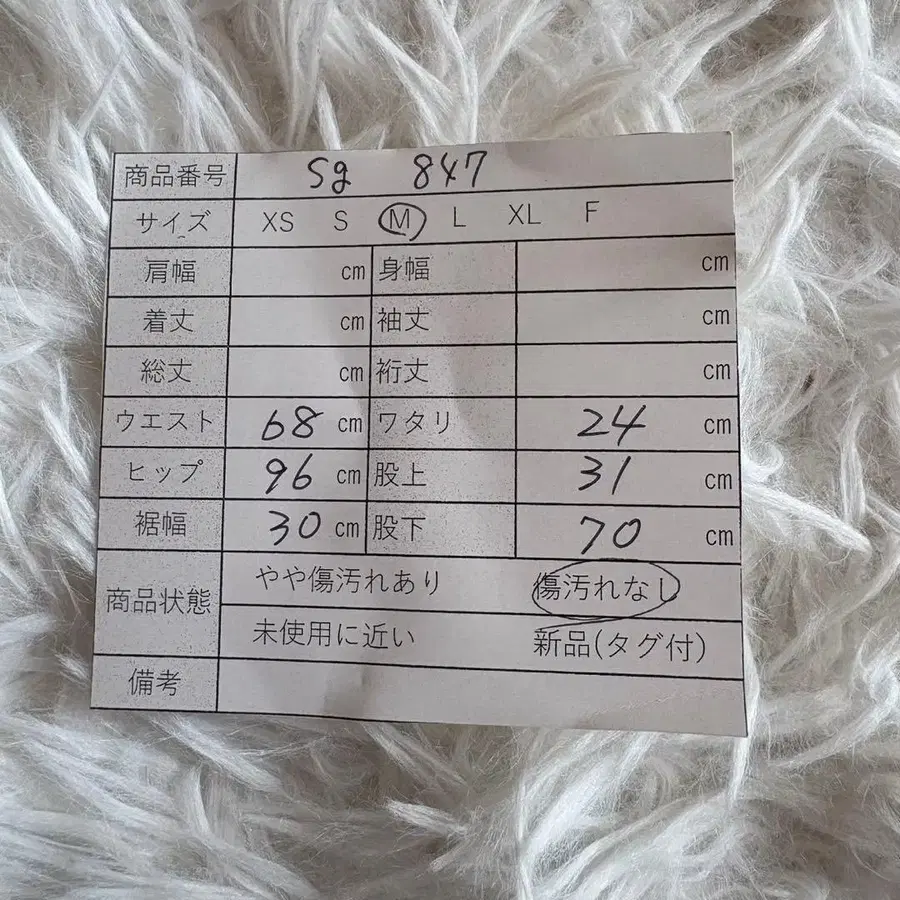 商品番号 Sg 847
サイズ XS S M L XL F
肩幅 cm 身幅 cm
着丈 cm 袖丈 cm
総丈 cm 裄丈 cm
ウエスト 68 cm ワタリ 24 cm
ヒップ 96 cm 股上 31 cm
裾幅 30 cm 股下 70 cm
商品状態 やや傷汚れあり 傷汚れなし
未使用に近い 新品(タグ付)
備考